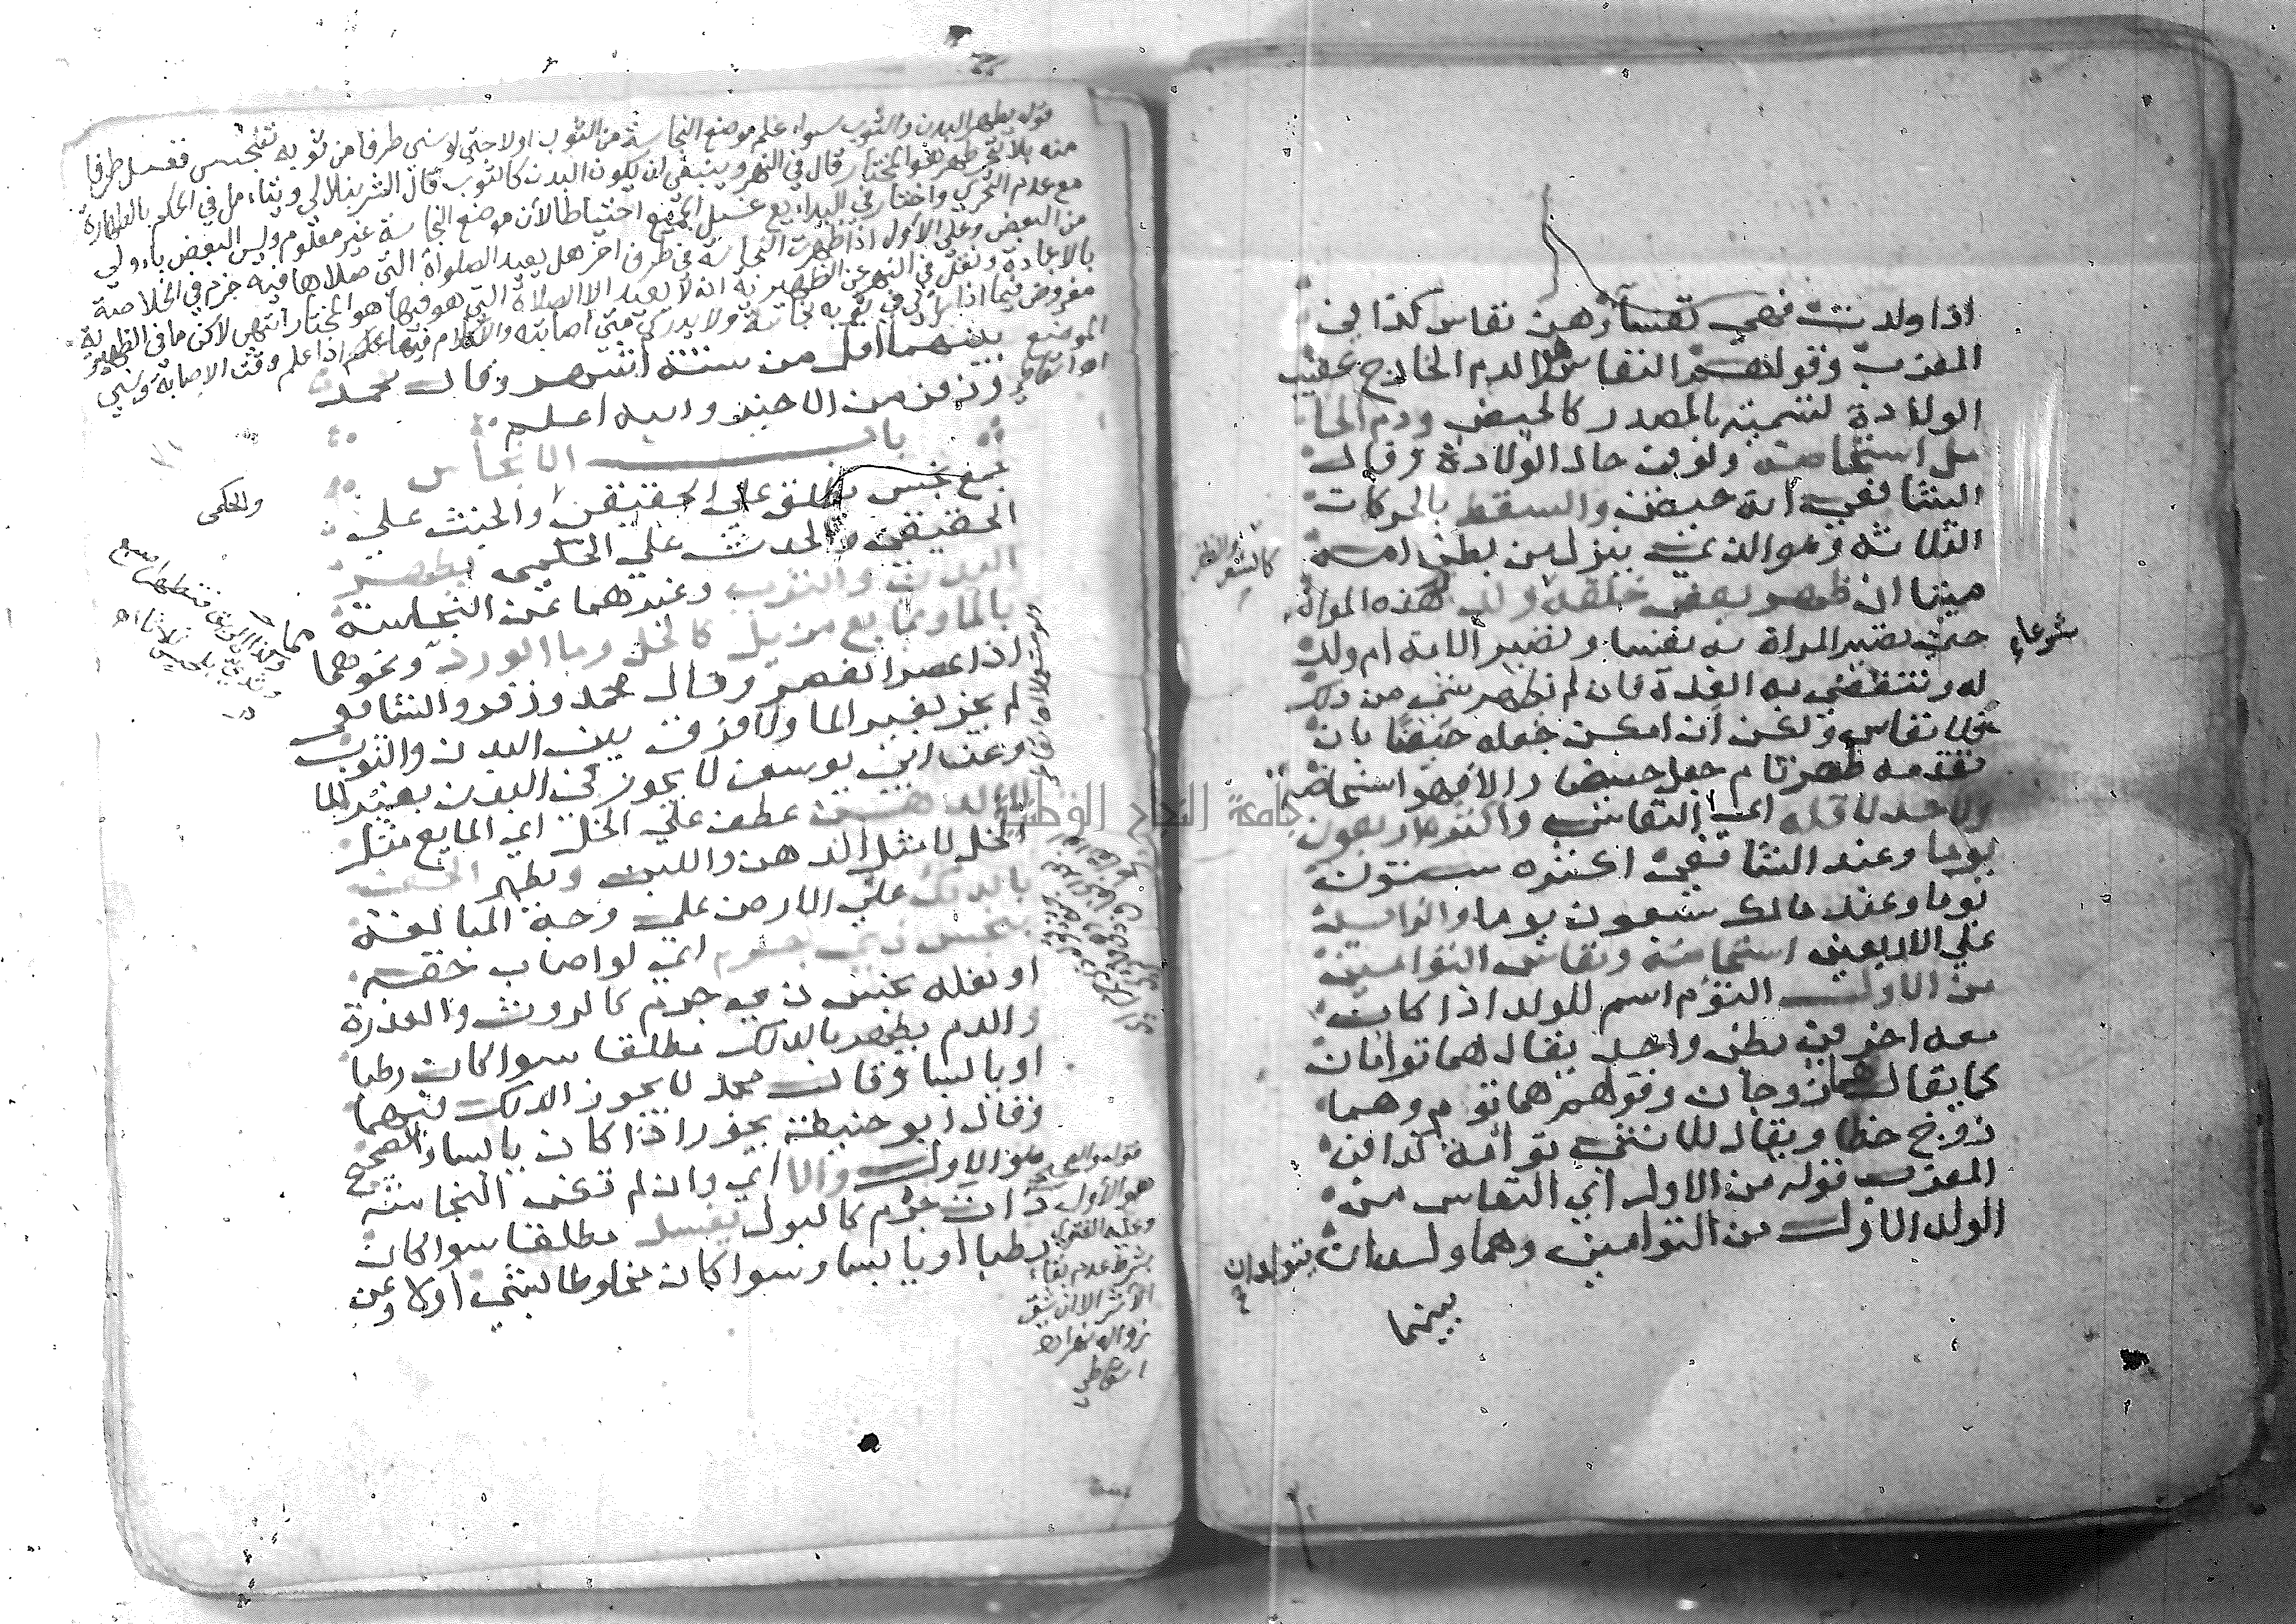 اذا ولدت فهي نفساء وهن نفاس كذا في
المغرب وقولهم النفاس هو الدم الخارج عقيب
الولادة تسمية بالمصدر كالحيض ودم الحا
مل استحاضة ولو في حال الولادة وقال
الشافعي انه حيض والسقط بالحركات
الثلاثة وهو الذي ينزل من بطن امه
كالشعر والظفر
ميتا ان ظهر بعض خلقه ولد لهذه المراة
حتى تصير المراة به نفسا وتصير الامة ام ولد
شرعا
له وتنقضي به العدة فان لم يظهر شي من ذلك
فلا نفاس ولكن ان امكن جعله حيضا بان
تقدمه طهر تام جعل حيضا والا فهو استحاضة
ولا حد لاقله اي النفاس واكثره اربعون
يوما وعند الشافعي اكثره ستون
يوما وعند مالك سبعون يوما والزايد
علي الاربعين استحاضة ونفاس التوامين
من الاول التوم اسم للولد اذا كان
معه اخر في بطن واحد يقال هما توامان
كما يقال هما زوجان وقولهم هما توم وهما
زوج خطا ويقال للانثى توامة كذا في
المغرب قوله من الاول اي النفاس من
الولد الاول من التوامين وهما ولدان يتولدان
بينهما
قوله يطهر البدن والثوب سواء علم موضع النجاسة من الثوب اولا حتى لو نسي طرفا من ثوبه تنجس فغسل طرفا
منه بلا تحر طهر هو المختار قال في النهر وينبغي ان يكون البدن كالثوب قال الشرنبلالي ويتامل في الحكم بالطهارة
مع عدم التحري واختار في البدايع غسل الجميع احتياطا لان موضع النجاسة غير معلوم وليس البعض باولى
من البعض وعلى الاول اذا ظهرت النجاسة في طرف اخر هل يعيد الصلواة التي صلاها فيه جزم في الخلاصة
بالاعادة ونقل في النهر عن الظهيرية انه لا يعيد الا الصلاة التي هو فيها هو المختار انتهى لاكن ما في الظهيرية
مفروض فيما اذا راى في ثوبه نجاسة ولا يدري متى اصابته والكلام فيما اذا علم وقت الاصابة ونسي
الموضع
بينهما اقل من ستة اشهر وقال محمد
وزفر من الاخير والله اعلم
باب الانجاس
جمع نجس يطلق على الحقيقي والخبث علي
والحكمى
الحقيقي والحدث علي الحكمي يطهر
البدن والثوب وغيرهما عن النجاسة
بالما وبمايع مزيل كالخل وما الورد ونحوهما مما
اذا عصر انعصر وقال محمد وزفر والشافعي
لم يجز بغير الما ولا فرق بين البدن والثوب
وعن ابي يوسف لا يجوز في البدن بغير الما
لا الدهن عطف علي الخل اي المايع مثل
الخل لا مثل الدهن واللبن ويطهر الخف
بالدلك علي الارض علي وجه المبالغة
بنجس ذي جرم اي لو اصاب خفه
او نعله نجس ذي جرم كالروث والعذرة
والدم يطهر بالدلك مطلقا سوا كان رطبا
او يابسا وقال محمد لا يجوز الدلك فيهما
وقال ابو حنيفة يجوز اذا كان يابسا والصحيح
هو الاول والا اي وان لم تكن النجاسة
ذات جرم كالبول يغسل مطلقا سوا كان
رطبا او يابسا وسوا كان مخلوطا بشي اولا وعن
قوله والصحيح
هو الاول
وعليه الفتوى
بشرط عدم بقاء
الاثر الا ان يشق
زواله نهر اه
جامعة النجاح الوطنية